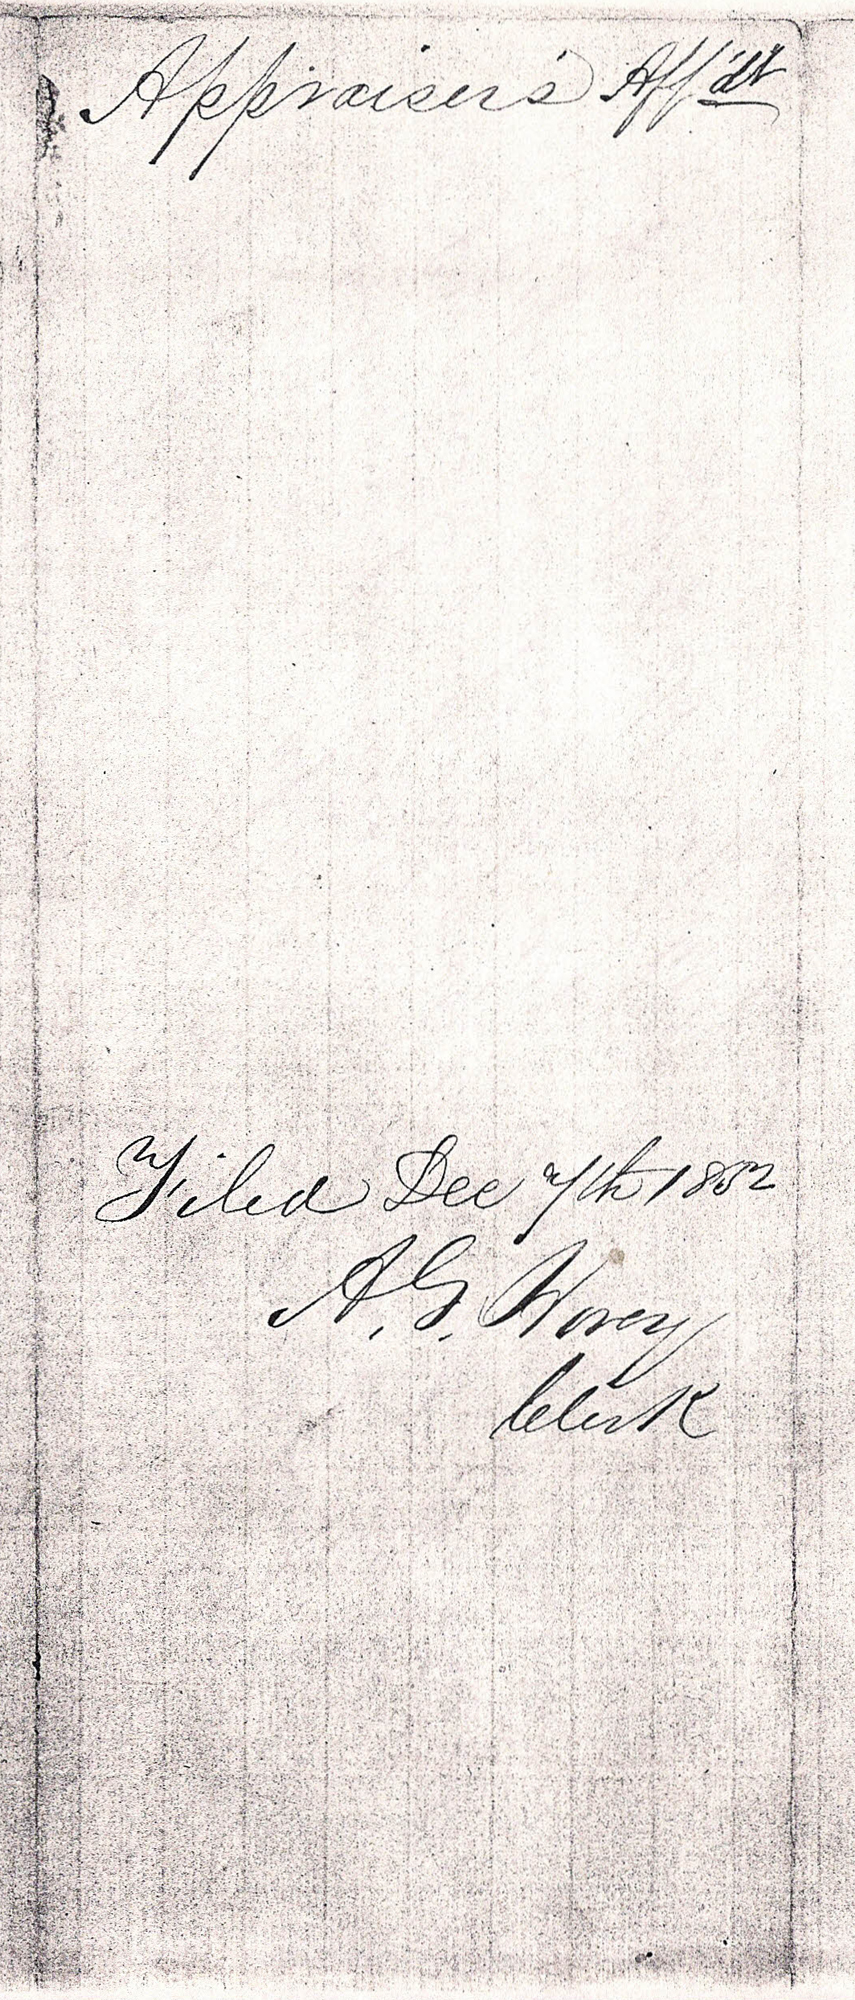 Appraisers' Aff'dt
Filed Dec 7th 1852
A. G. Hovey
Clerk